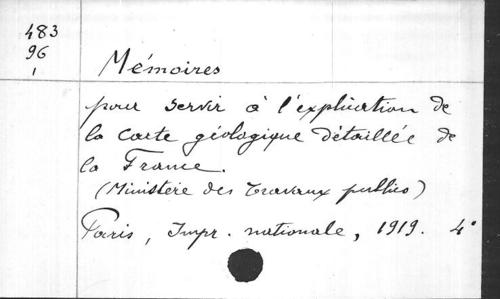 483
96
1
Mémoires
pour servir à l'explication de
la Carte géologique détaillée de
la France.
(Ministère des Travaux publics)
Paris, Impr. nationale, 1919. 4°